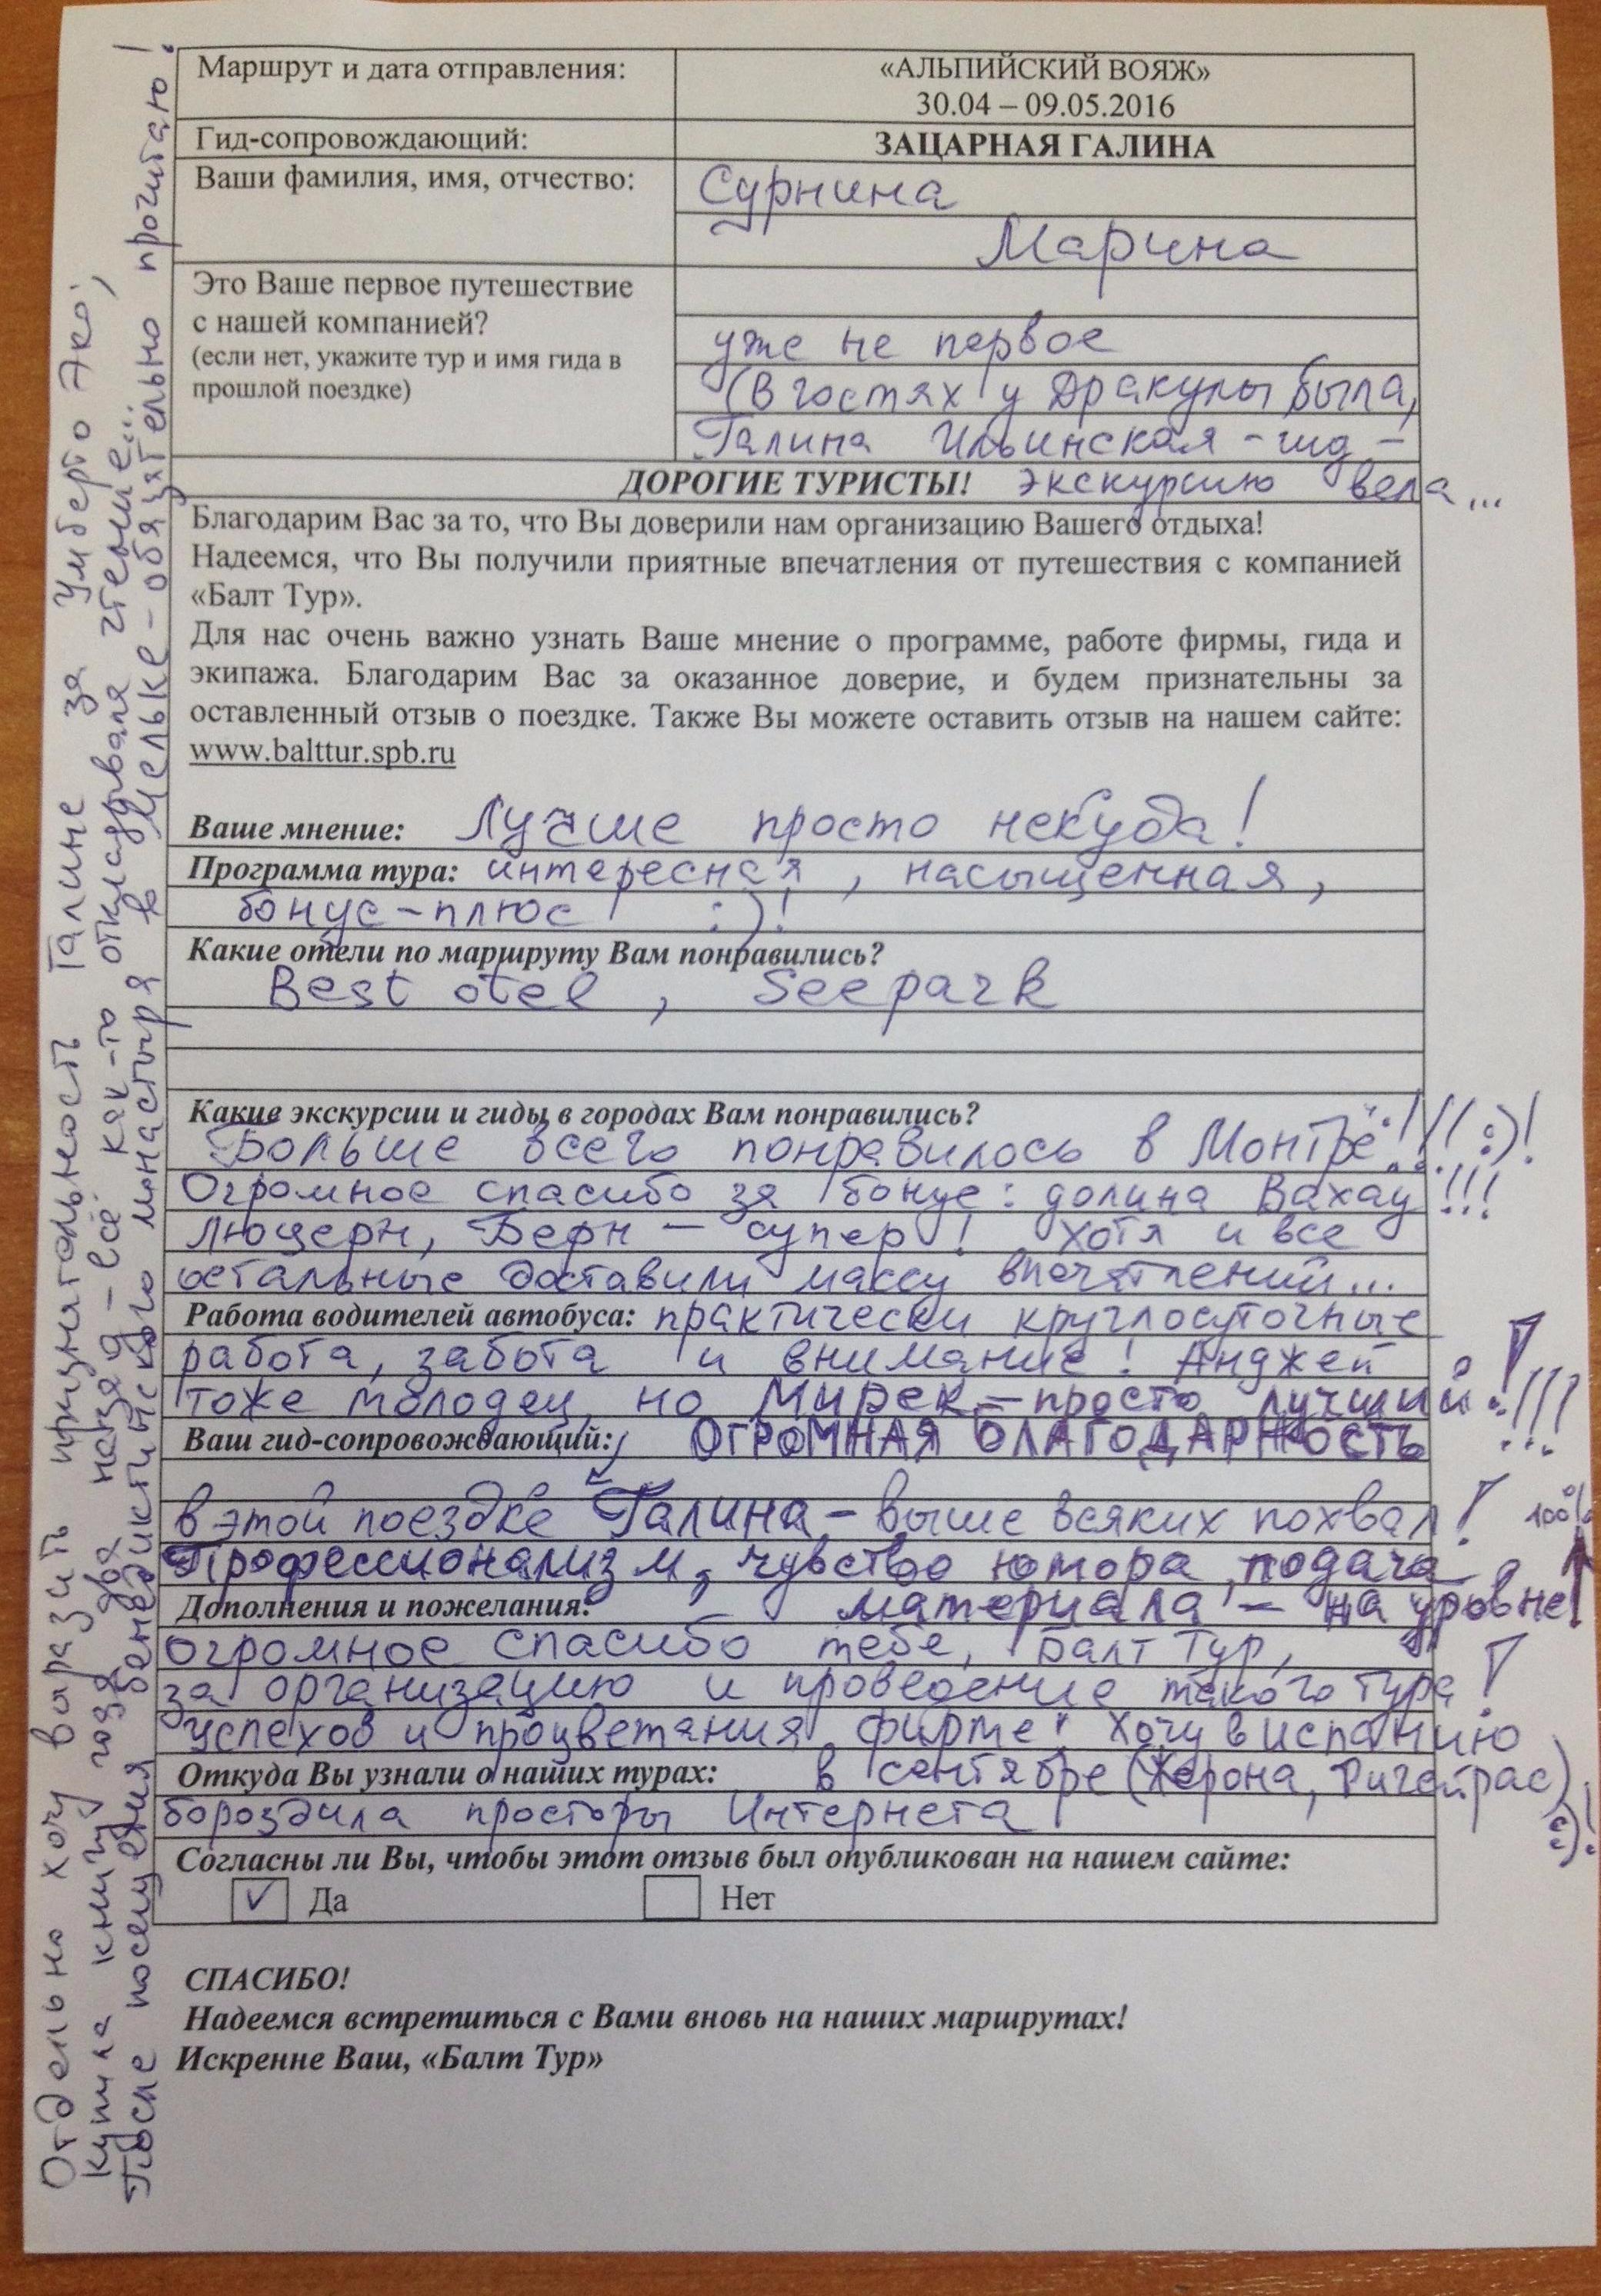 Маршрут и дата отправления:
«АЛЬПИЙСКИЙ ВОЯЖ»
30.04 – 09.05.2016
Гид-сопровождающий:
ЗАЦАРНАЯ ГАЛИНА
Ваши фамилия, имя, отчество:
Сурнина
Марина
Это Ваше первое путешествие
с нашей компанией?
(если нет, укажите тур и имя гида в
прошлой поездке)
уже не первое
(В гостях у Дракулы была,
Галина Ильинская - гид -
ДОРОГИЕ ТУРИСТЫ! экскурсию вела...
Благодарим Вас за то, что Вы доверили нам организацию Вашего отдыха!
Надеемся, что Вы получили приятные впечатления от путешествия с компанией
«Балт Тур».
Для нас очень важно узнать Ваше мнение о программе, работе фирмы, гида и
экипажа. Благодарим Вас за оказанное доверие, и будем признательны за
оставленный отзыв о поездке. Также Вы можете оставить отзыв на нашем сайте:
www.balttur.spb.ru
Ваше мнение: Лучше просто некуда!
Программа тура: интересная, насыщенная,
бонус-плюс :)!
Какие отели по маршруту Вам понравились?
Best otel, Seepark
Какие экскурсии и гиды в городах Вам понравились?
Больше всего понравилось в Монтрё!!! :)!
Огромное спасибо за бонус: долина Вахау!!!
Люцерн, Берн - супер! Хотя и все
остальные доставили массу впечатлений...
Работа водителей автобуса: практически круглосуточные
работа, забота и внимание! Анджей
тоже молодец, но Мирек - просто лучший!!!!
Ваш гид-сопровождающий: ОГРОМНАЯ БЛАГОДАРНОСТЬ
в этой поездке Галина - выше всяких похвал! 100%
Профессионализм, чувство юмора, подача
Дополнения и пожелания: материала - на уровне!
огромное спасибо тебе, Балт Тур,
за организацию и проведение такого тура!
Успехов и процветания фирме! Хочу в испанию
Откуда Вы узнали о наших турах: в сентябре (Жерона, Фигейрас) :)!
бороздила просторы Интернета
Согласны ли Вы, чтобы этот отзыв был опубликован на нашем сайте:
✓ Да Нет
СПАСИБО!
Надеемся встретиться с Вами вновь на наших маршрутах!
Искренне Ваш, «Балт Тур»
Отдельно хочу выразить признательность Галине за Умберто Эко;
купила книгу года два назад - всё как-то откладывала чтение...
После посещения бенедиктинского монастыря в Мельке - обязательно прочитаю!